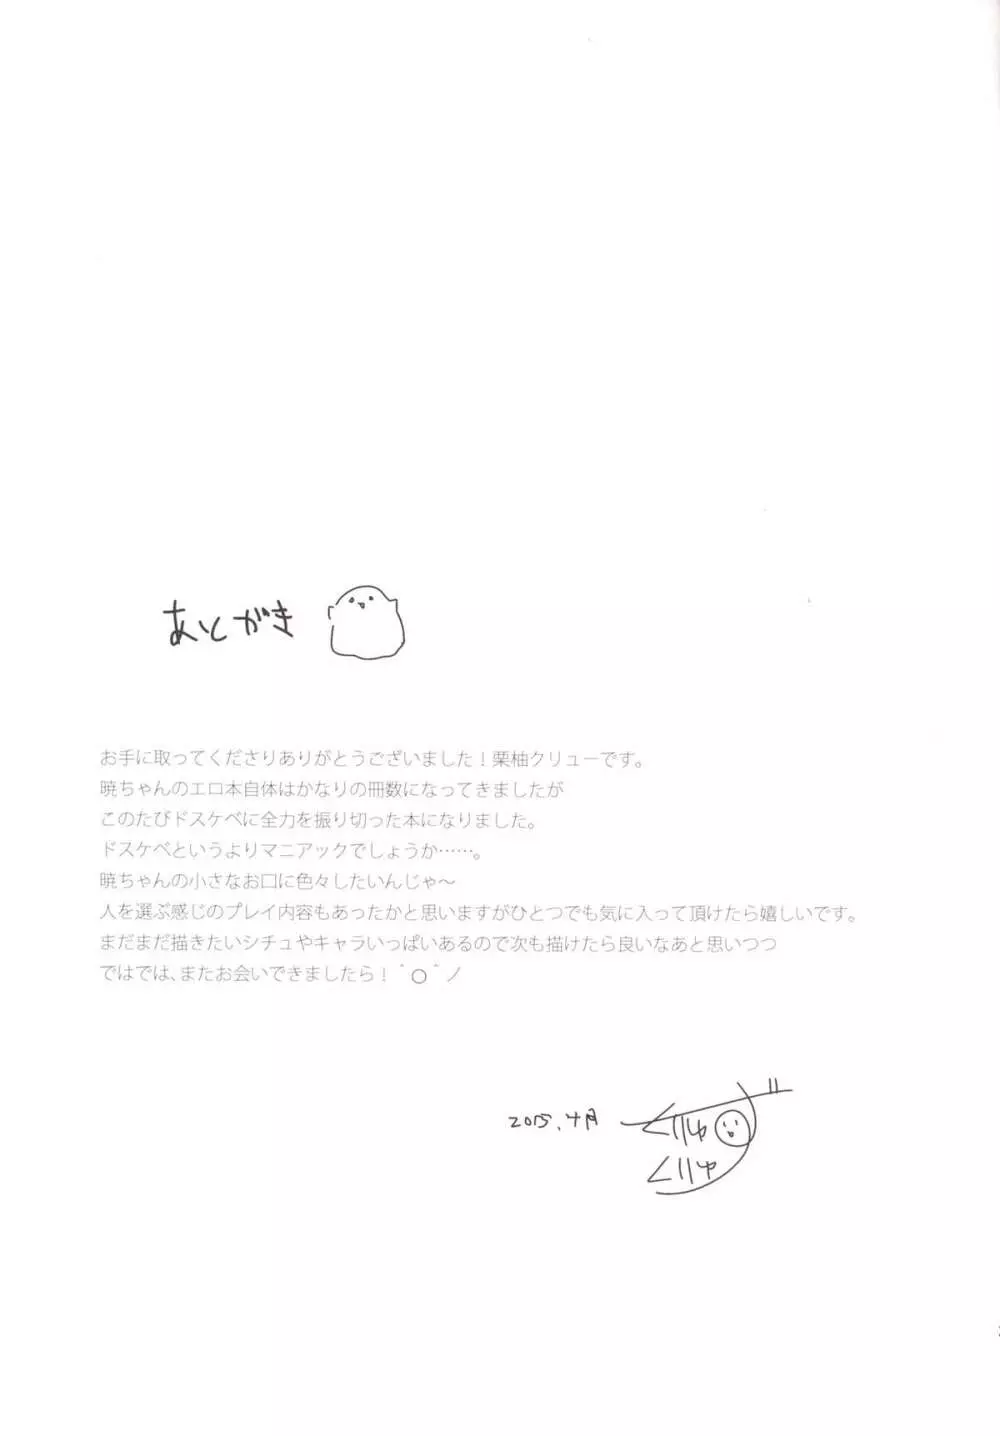 あとがき
お手に取ってくださりありがとうございました！栗柚クリューです。
暁ちゃんのエロ本自体はかなりの冊数になってきましたが
このたびドスケベに全力を振り切った本になりました。
ドスケベというよりマニアックでしょうか……。
暁ちゃんの小さなお口に色々したいんじゃ～
人を選ぶ感じのプレイ内容もあったかと思いますがひとつでも気に入って頂けたら嬉しいです。
まだまだ描きたいシチュやキャラいっぱいあるので次も描けたら良いなあと思いつつ
ではでは、またお会いできましたら！＾○＾ノ
2015.4月
くりゆ
くりゅ